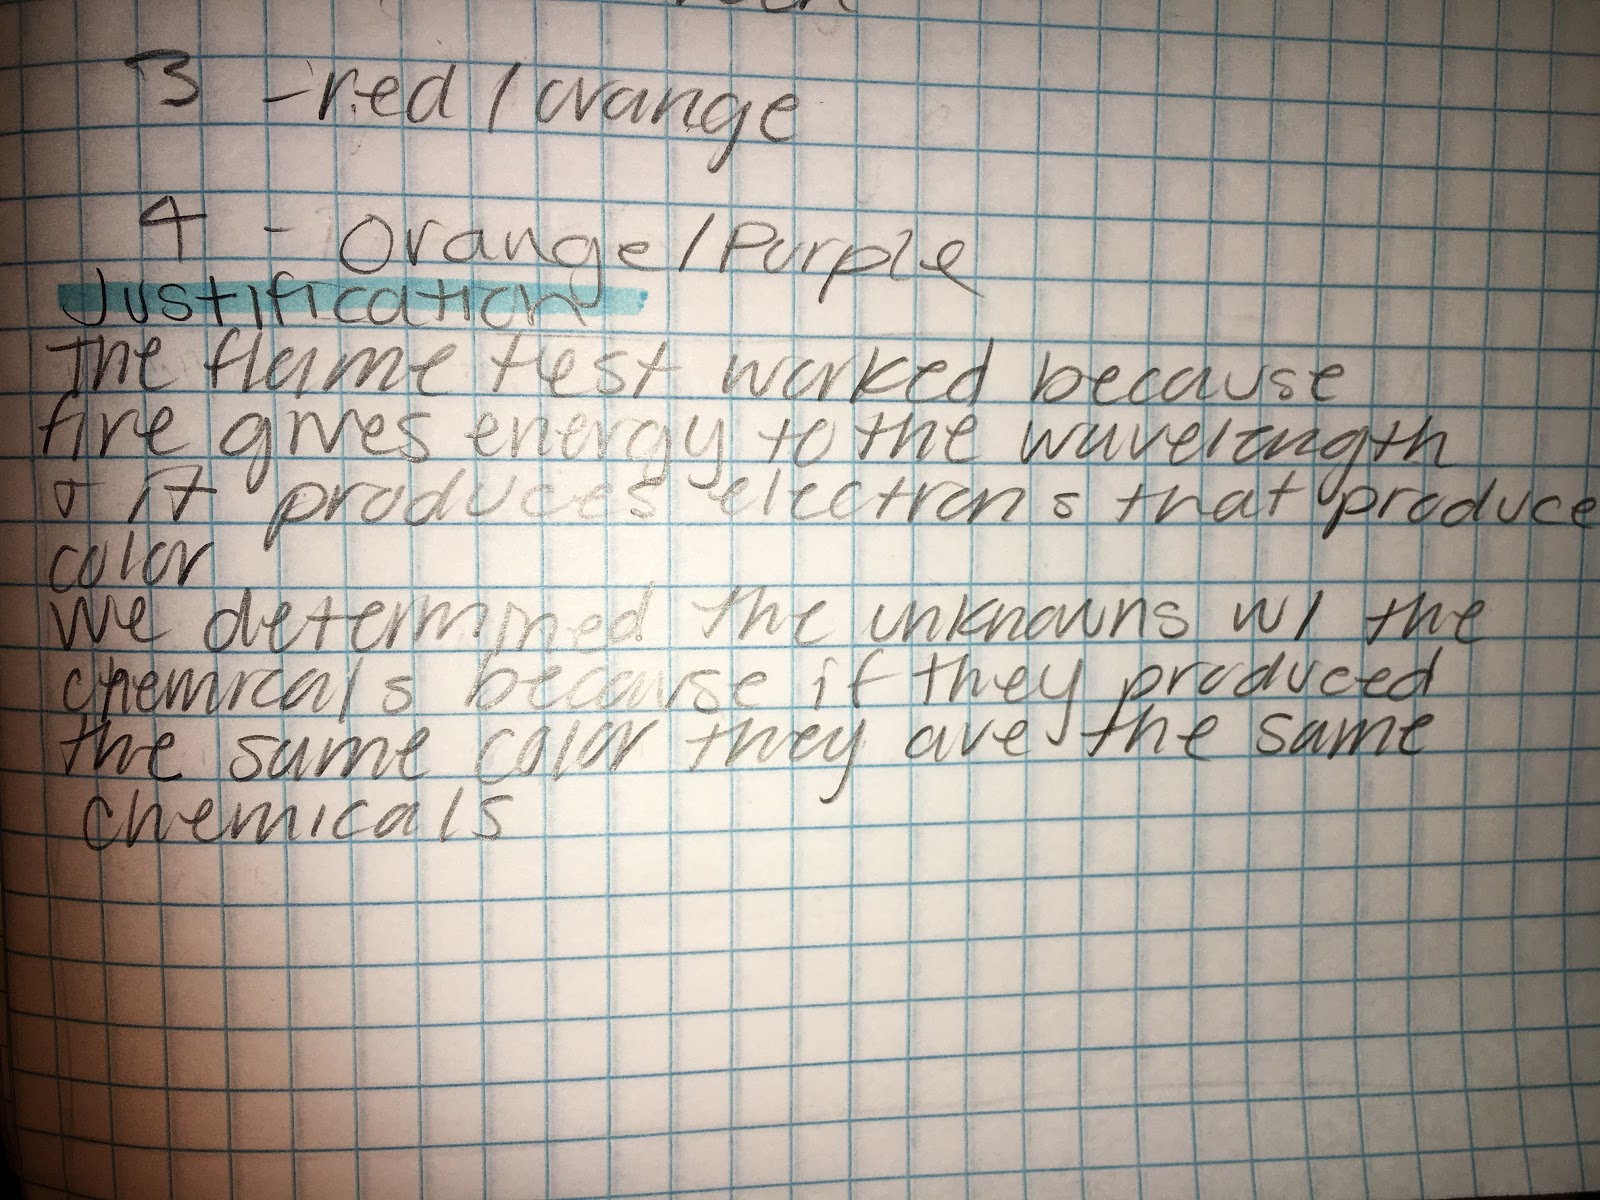 3 - red / orange
4 - Orange / Purple
Justification
The flame test worked because
fire gives energy to the wavelength
+ it produces electrons that produce
color
We determined the unknowns w/ the
chemicals because if they produced
the same color they are the same
chemicals